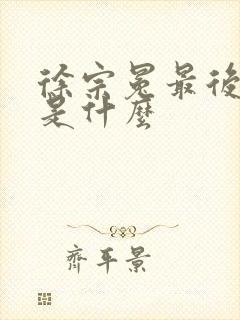 徐宗冕最後
是什麼
齊平景